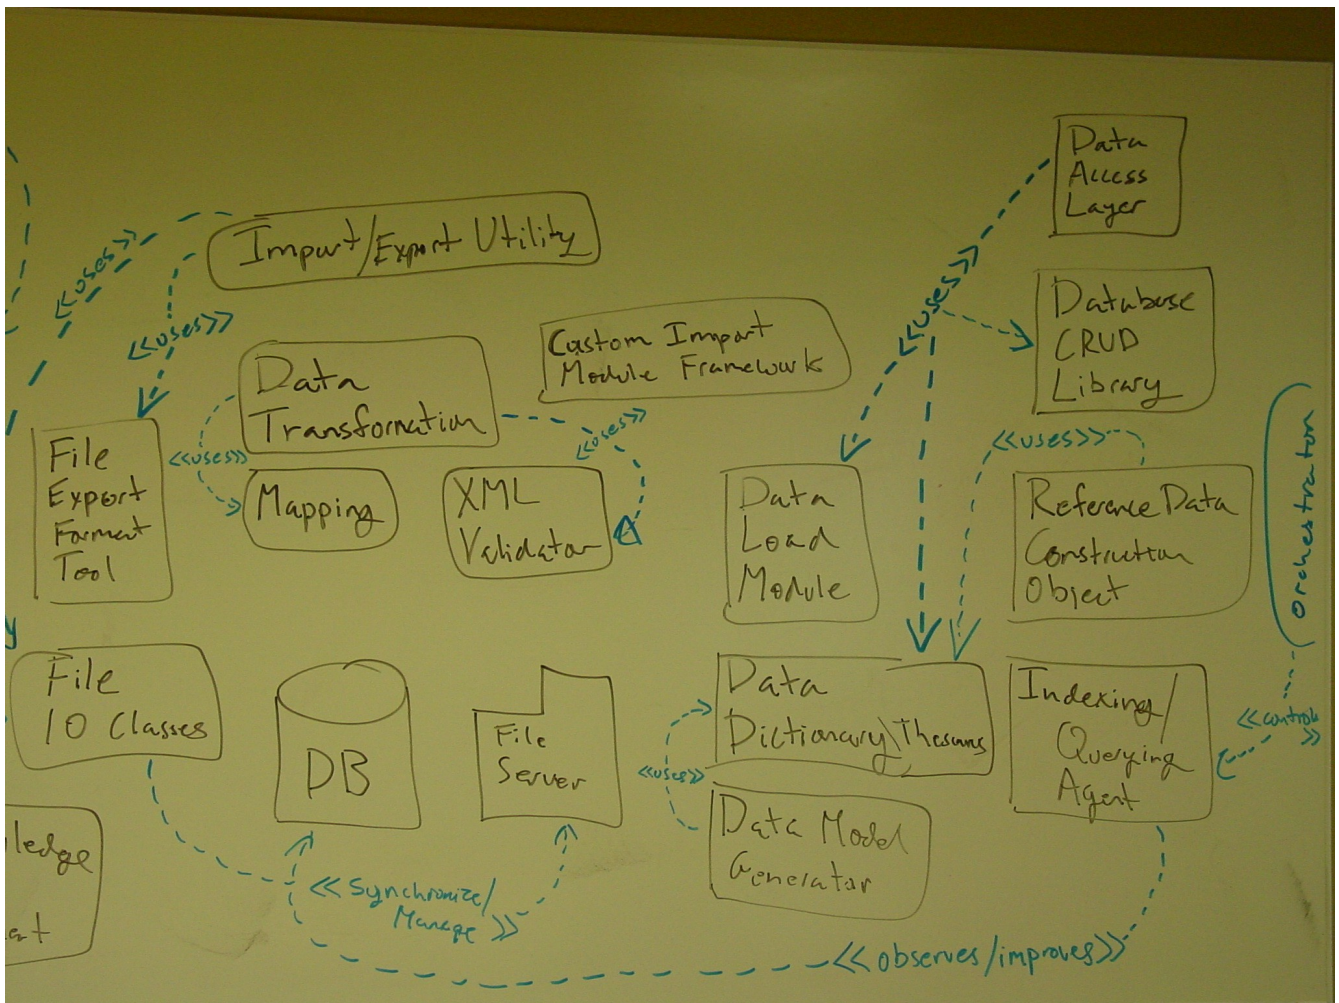 Data
Access
Layer
<<uses>>
Import/Export Utility
<<uses>>
<<uses>>
Database
CRUD
Library
Custom Import
Module Framework
Data
Transformation
<<uses>>
<<uses>>
<<uses>>
Orchestrator
File
Export
Format
Tool
Mapping
XML
Validator
Data
Load
Module
Reference Data
Construction
Object
File
IO Classes
DB
File
Server
Data
Dictionary\
<<uses>>
Indexing/
Querying
Agent
<<controls
>>
Data Model
Generator
ledge
at
<<Synchronize/
Manage >>
<<observes/improves>>